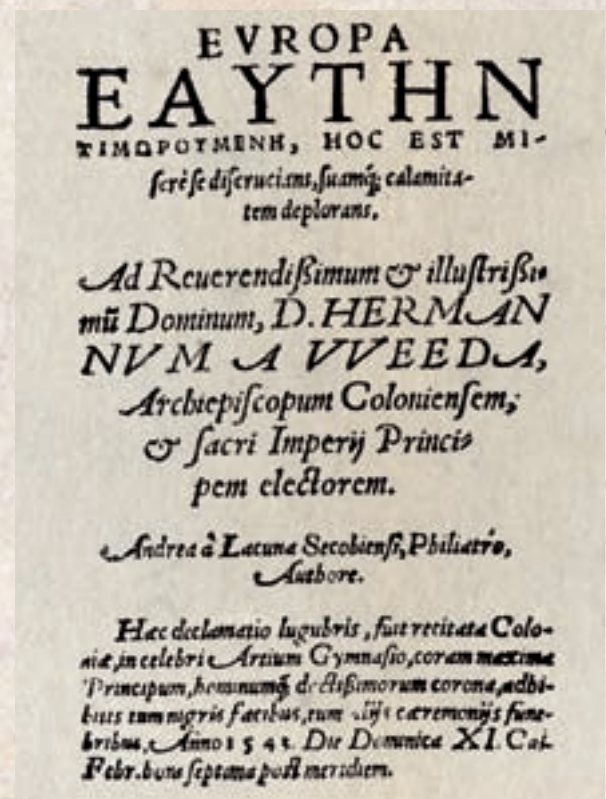 EVROPA
EAYTHN
ΤΙΜΩΡΟΥΜΕΝΗ, HOC EST MI-
ſerè ſe diſcrucians, ſuamq́; calamita-
tem deplorans.
Ad Reuerendißimum & illuſtrißi-
mũ Dominum, D. HERMAN
NVM A VVEEDA,
Archiepiſcopum Colonienſem,
& ſacri Imperij Princi-
pem electorem.
Andrea à Lacuna Secobienſi, Philiatro,
Authore.
Hæc declamatio lugubris, fuit recitata Colo-
niæ, in celebri Artium Gymnaſio, coram maxima
Principum, hominumq́; doctißimorum corona, adhi-
bitis tum nigris facibus, tum alijs cæremonijs fune-
bribus, Anno 1 5 4 3. Die Dominica XI. Cal.
Febr. hora ſeptima poſt meridiem.